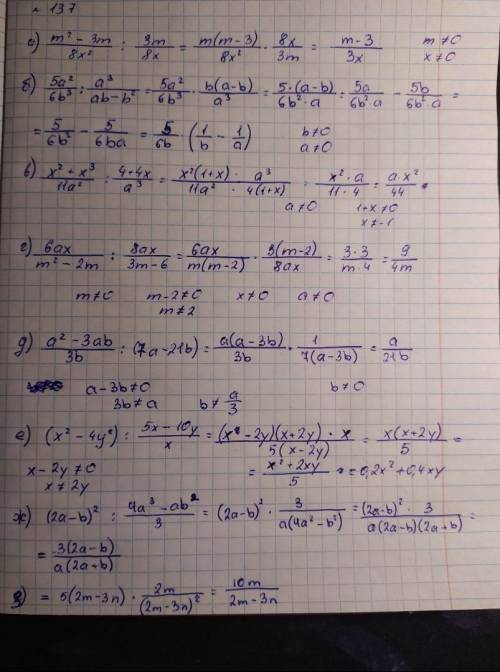 № 137
а) (m² - 3m)/(8x²) : (3m)/(8x) = (m(m-3))/(8x²) · (8x)/(3m) = (m-3)/(3x)   m≠0   x≠0
б) (5a²)/(6b³) : (a³)/(ab-b²) = (5a²)/(6b³) · (b(a-b))/(a³) = (5·(a-b))/(6b²·a) = (5a)/(6b²·a) - (5b)/(6b²·a) =
= 5/(6b²) - 5/(6ba) = 5/(6b) (1/b - 1/a)   b≠0   a≠0
в) (x²+x³)/(11a²) : (4+4x)/(a³) = (x²(1+x) · a³)/(11a² · 4(1+x)) = (x²·a)/(11·4) = (a·x²)/44 .
a≠0   1+x≠0   x≠-1
г) (6ax)/(m²-2m) : (8ax)/(3m-6) = (6ax)/(m(m-2)) · (3(m-2))/(8ax) = (3·3)/(m·4) = 9/(4m)
m≠0   m-2≠0   x≠0   a≠0
m≠2
д) (a²-3ab)/(3b) : (7a-21b) = (a(a-3b))/(3b) · 1/(7(a-3b)) = a/(21b)
a-3b≠0   b≠0
3b≠a   b≠a/3
е) (x²-4y²) : (5x-10y)/x = ((x-2y)(x+2y)·x)/(5(x-2y)) = (x(x+2y))/5 =
x-2y≠0   = (x²+2xy)/5 = 0,2x²+0,4xy
x≠2y
ж) (2a-b)² : (4a³-ab²)/3 = (2a-b)² · 3/(a(4a²-b²)) = ((2a-b)²·3)/(a(2a-b)(2a+b)) =
= (3(2a-b))/(a(2a+b))
з) = 5(2m-3n) · (2m)/((2m-3n)²) = (10m)/(2m-3n)